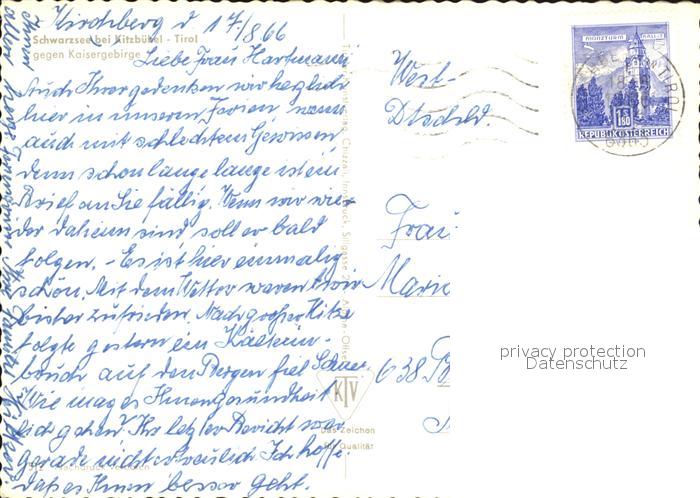 Kirchberg d 17/8 66
Schwarzsee bei Kitzbühel - Tirol
gegen Kaisergebirge
Liebe Frau Hartmann
Auch Ihrer gedenken wir herzlich
hier in unseren Ferien, wenn
auch mit schlechtem Gewissen,
denn schon lange lange ist ein
Brief an Sie fällig. Wenn wir wie-
der daheim sind soll er bald
folgen. - Es ist hier einmalig
schön. Mit dem Wetter waren wir
bisher zufrieden. Nach großer Hitze
folgte gestern ein Kälteein-
bruch auf den Bergen fiel Schnee.
Wie mag es Ihnen gesundheit-
lich gehen? Ihr letzter Bericht war
gerade nicht erfreulich. Ich hoffe.
daß es Ihnen besser geht.
West-
Dtschld.
Frau
Marie
638
MÜNZTURM HALL I. T.
S 1.80
REPUBLIK ÖSTERREICH
KTV
Das Zeichen
für Qualität
privacy protection
Datenschutz